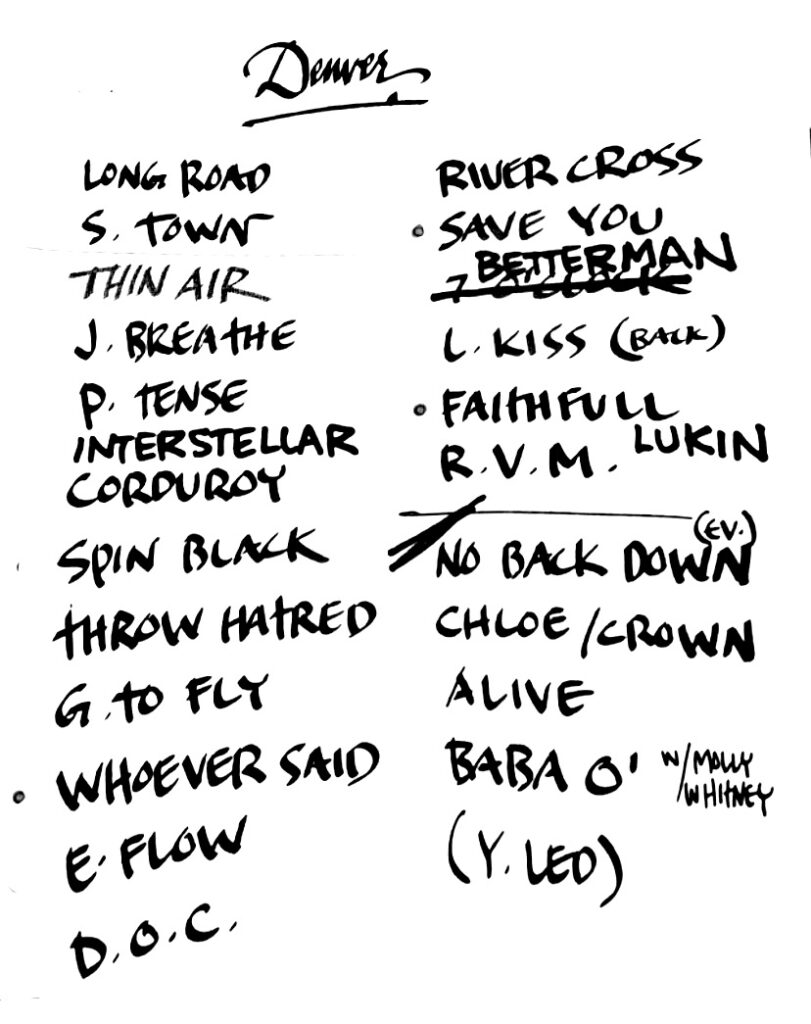 Denver
LONG ROAD
S. TOWN
THIN AIR
J. BREATHE
P. TENSE
INTERSTELLAR
CORDUROY
SPIN BLACK
THROW HATRED
G. TO FLY
WHOEVER SAID
E. FLOW
D.O.C.
RIVER CROSS
SAVE YOU
BETTERMAN
L. KISS (BACK)
FAITHFULL
R.V.M. LUKIN
(EV.)
NO BACK DOWN
CHLOE/CROWN
ALIVE
BABA O' W/MOLLY
/WHITNEY
(Y. LED)